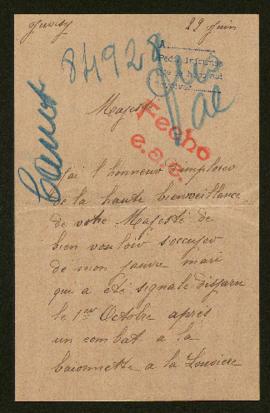 Juvisy 29 Juin
84928
Majesté
Fecho
e.a.e.
J'ai l'honneur d'implorer
de la haute bienveillance
de votre Majesté de
bien vouloir s'occuper
de mon pauvre mari
qui a été signalé disparu
le 1er Octobre apres
un combat a la
baionnette a la Louviere